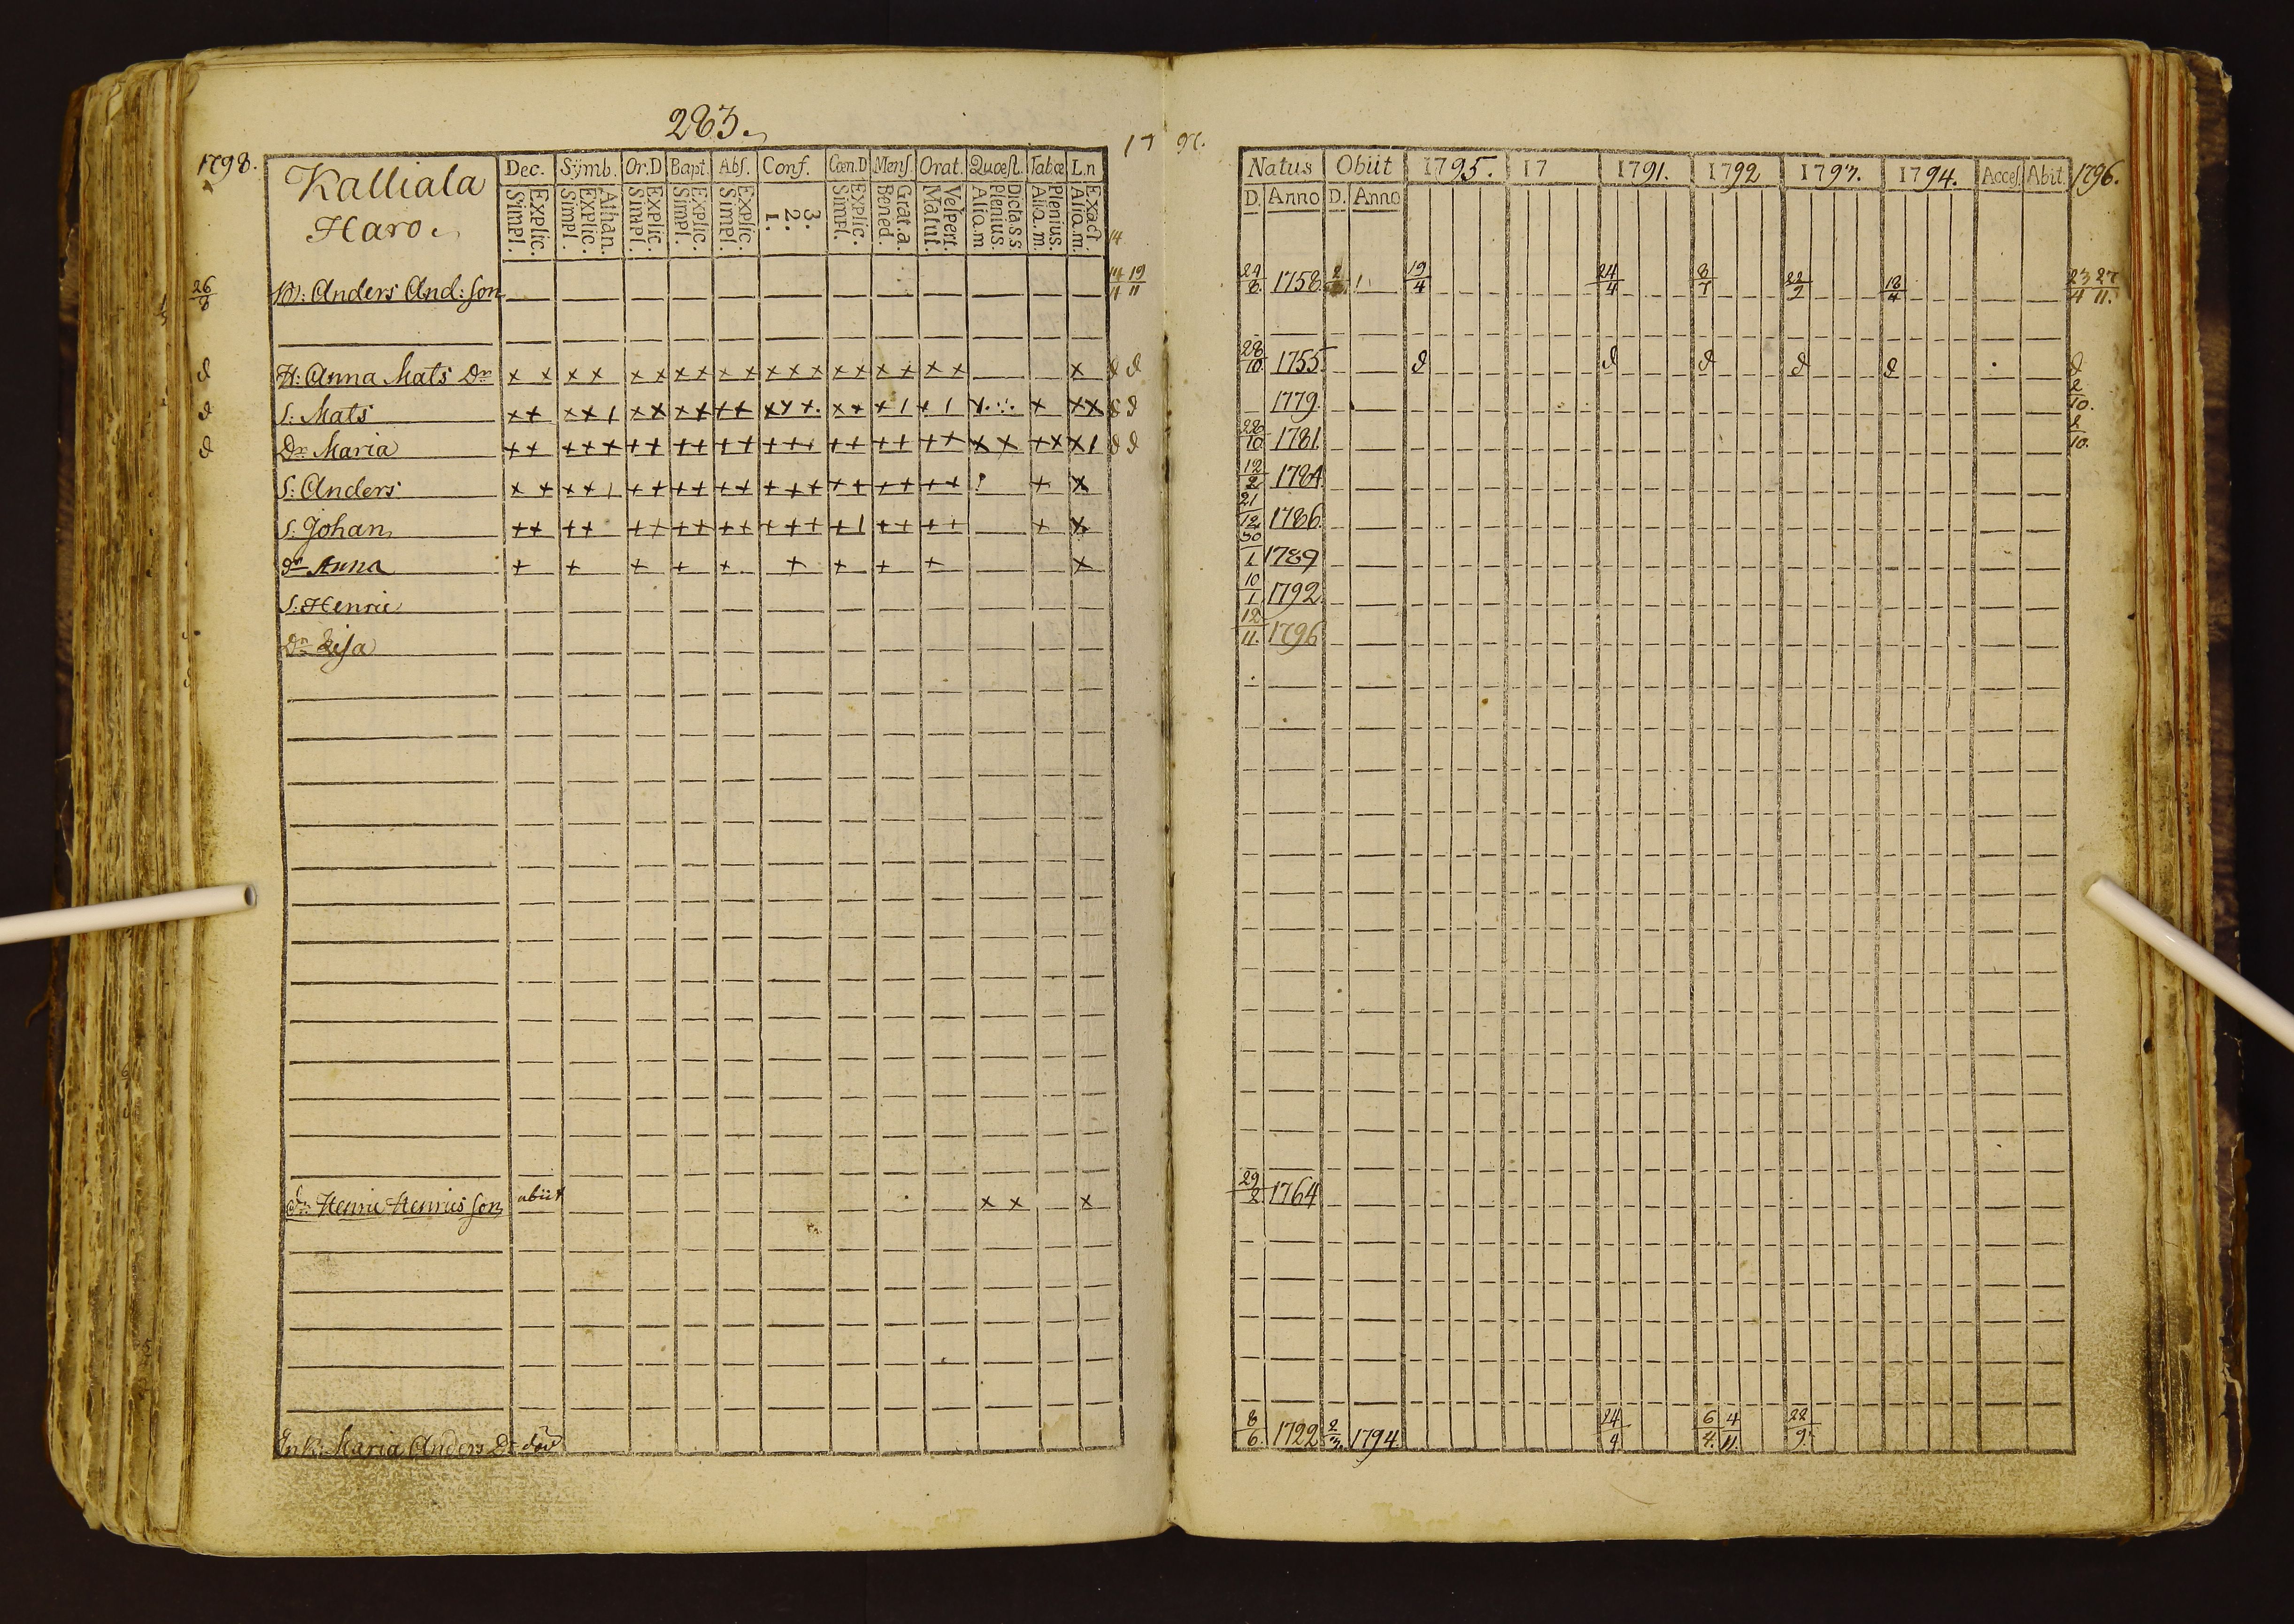 283.
1798.
Kalliala
Haro.
Dec. Symb. Or.D Bapt. Abs. Conf. Cœn.D Mens. Orat. Quæst. Tabœ L.n
Explic. Simpl. Athan. Explic. Simpl. Explic. Simpl. Explic. Simpl. Explic. Simpl. 3. 2. 1. Explic. Simpl. Grat. a. Bened. Vespert. Matut. Dicta s s Plenius. Aliq.m Plenius. Aliq.m. Exact. Aliq.m.
26/8 Anders And: son 14/4 19/11
d H: Anna Mats Dr x x x x x x x x x x x x x x x x x x x x d d
d S: Mats
d Dr Maria
S: Anders
S: Johan
dr Anna + + + + + + + + + x
S: Henric
Dr Lisa
Henric Henrics son abiit x x x
Enk: Maria Anders Dr död
17 97.
Natus Obiit 1795. 17 1791. 1792 1793. 1794. Acces. Abit. 1796.
D. Anno D. Anno
24/8 1758 19/4 24/4 8/7 22/9 18/4 23/4 27/11.
28/10 1755 d d d d d d
1779. 2/10.
28/10 1781. 2/10.
12/2 1784
21/12 1786.
30/1 1789
10/1 1792
12/11. 1796
29/2 1764
8/6 1722 2/3. 1794 24/4 6/4. 4/11. 22/9.